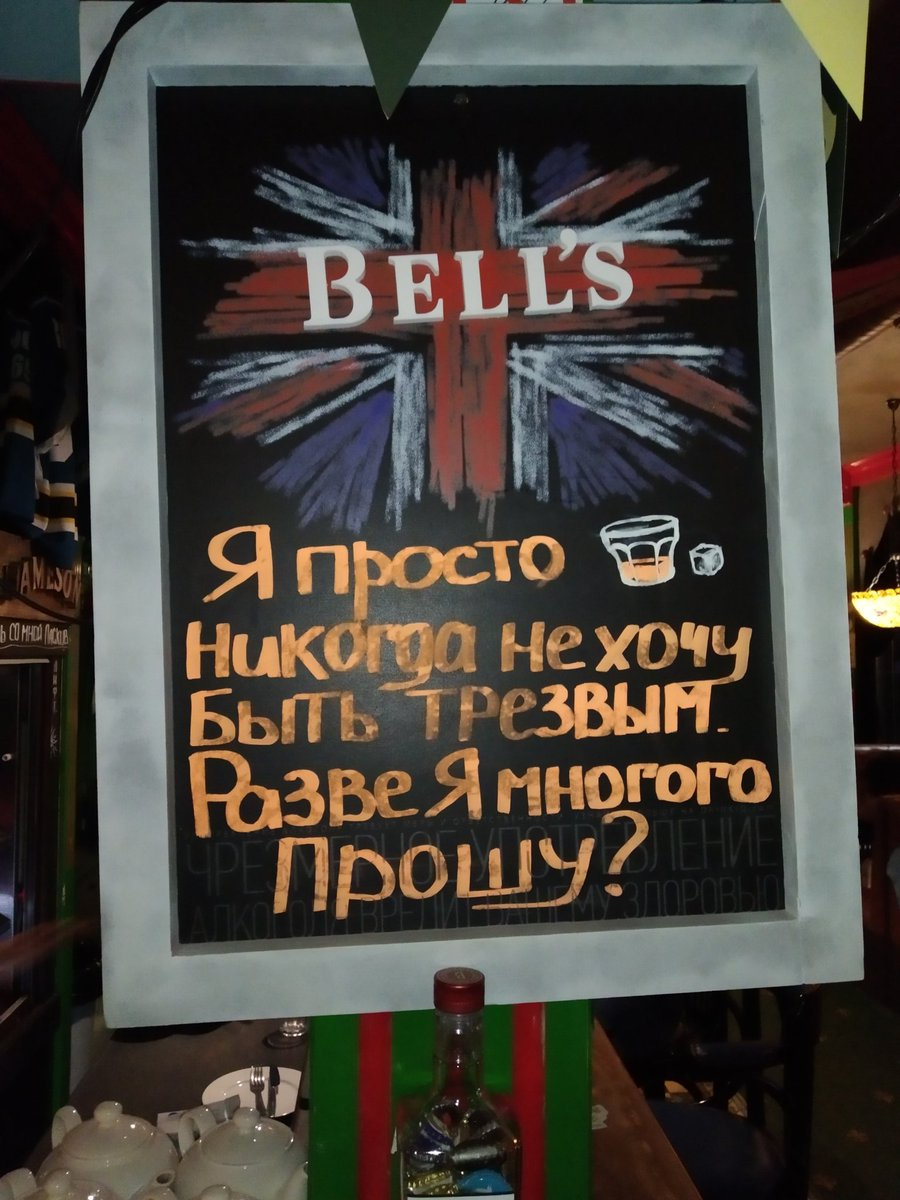 BELL'S
Я просто
никогда не хочу
быть трезвым.
Разве Я многого
прошу?
ЧРЕЗМЕРНОЕ УПОТРЕБЛЕНИЕ
АЛКОГОЛЯ ВРЕДИТ ВАШЕМУ ЗДОРОВЬЮ
AMESON
Ь СО МНОЙ